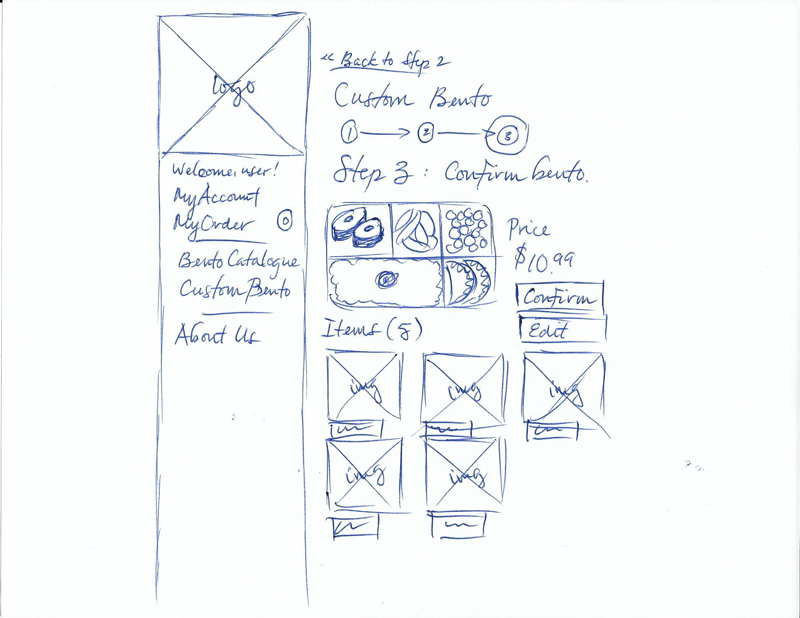 logo
Welcome, user!
My Account
My Order 0
Bento Catalogue
Custom Bento
About Us
<< Back to Step 2
Custom Bento
1 2 3
Step 3: Confirm bento.
Price
$10.99
Confirm
Edit
Items (5)
img img img
img img